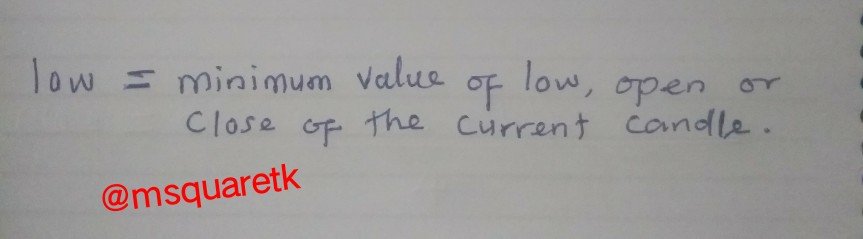 low = minimum value of low, open or
Close of the current candle.
@msquaretk